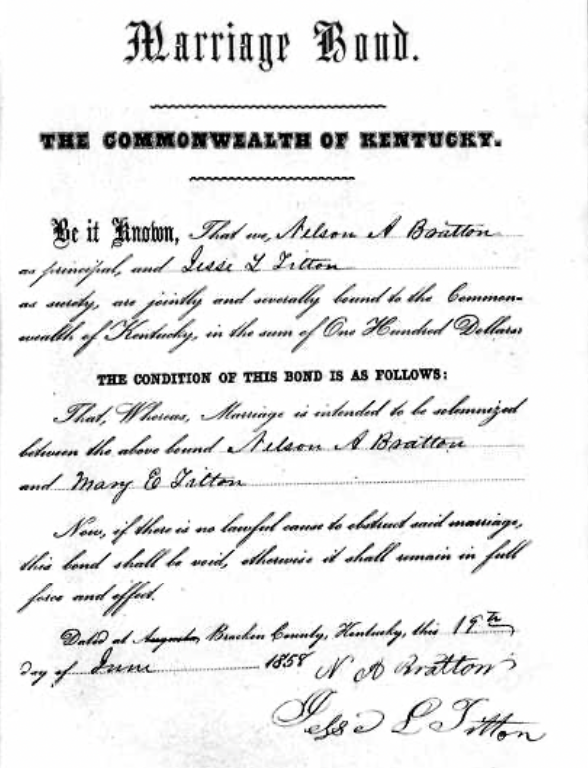 Marriage Bond.
THE COMMONWEALTH OF KENTUCKY.
Be it Known, That we, Nelson A Bratton
as principal, and Jesse L Titton
as surety, are jointly and severally bound to the Common-
wealth of Kentucky, in the sum of One Hundred Dollars:
THE CONDITION OF THIS BOND IS AS FOLLOWS:
That, Whereas, Marriage is intended to be solemnized
between the above bound Nelson A Bratton
and Mary E Titton
Now, if there is no lawful cause to obstruct said marriage,
this bond shall be void, otherwise it shall remain in full
force and effect.
Dated at Augusta, Bracken County, Kentucky, this 19th
day of June 1858 N A Bratton
Jesse L Titton